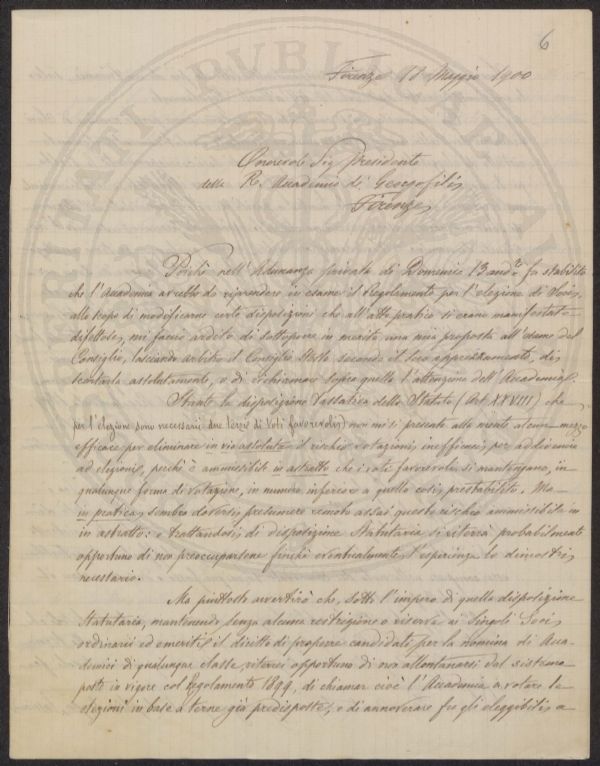 6
Firenze 18 Maggio 1900
Onorevole Sig Presidente
della R. Accademia di Georgofili
Firenze
Poichè nell'Adunanza privata di Domenica 13 and.te fu stabilito
che l'Accademia avrebbe da riprendere in esame il Regolamento per l'elezione di Soci,
allo scopo di modificarne certe disposizioni che all'atto pratico si erano manifestate
difettose, mi faccio ardito di sottoporre in merito una mia proposta all'esame del
Consiglio, lasciando arbitro il Consiglio stesso secondo il suo apprezzamento, di
scartarla assolutamente, o di richiamare sopra quella l'attenzione dell'Accademia.
Stante la disposizione tassativa dello Statuto (Art XXVIII) che
per l'elezione sono necessarii due terzi di voti favorevoli, non mi si presenta alla mente alcun mezzo
efficace per eliminare in via assoluta il rischio votazioni inefficaci per addivenire
ad elezioni, poichè è ammissibile in astratto che i voti favorevoli si mantengano, in
qualunque forma di votazione, in numero inferiore a quello così prestabilito. Ma
in pratica, sembra doversi presumere remoto assai questo rischio ammissibile in
in astratto: e trattandosi di disposizione Statutaria si riterrà probabilmente
opportuno di non preoccuparsene finchè eventualmente l'esperienza lo dimostri
necessario.
Ma piuttosto avvertirò che, sotto l'impero di quella disposizione
Statutaria, mantenendo senza alcuna restrizione o riserva ai singoli Soci
ordinarii ed emeriti il diritto di proporre candidati per la nomina di Acca-
demici di qualunque classe, riterrei opportuno di non allontanarsi dal sistema
posto in vigore col Regolamento 1899, di chiamar cioè l'Accademia a votare le
elezioni in base a terne già predisposte, e di annoverare fra gli eleggibili a
VERITATI PVBLICAE